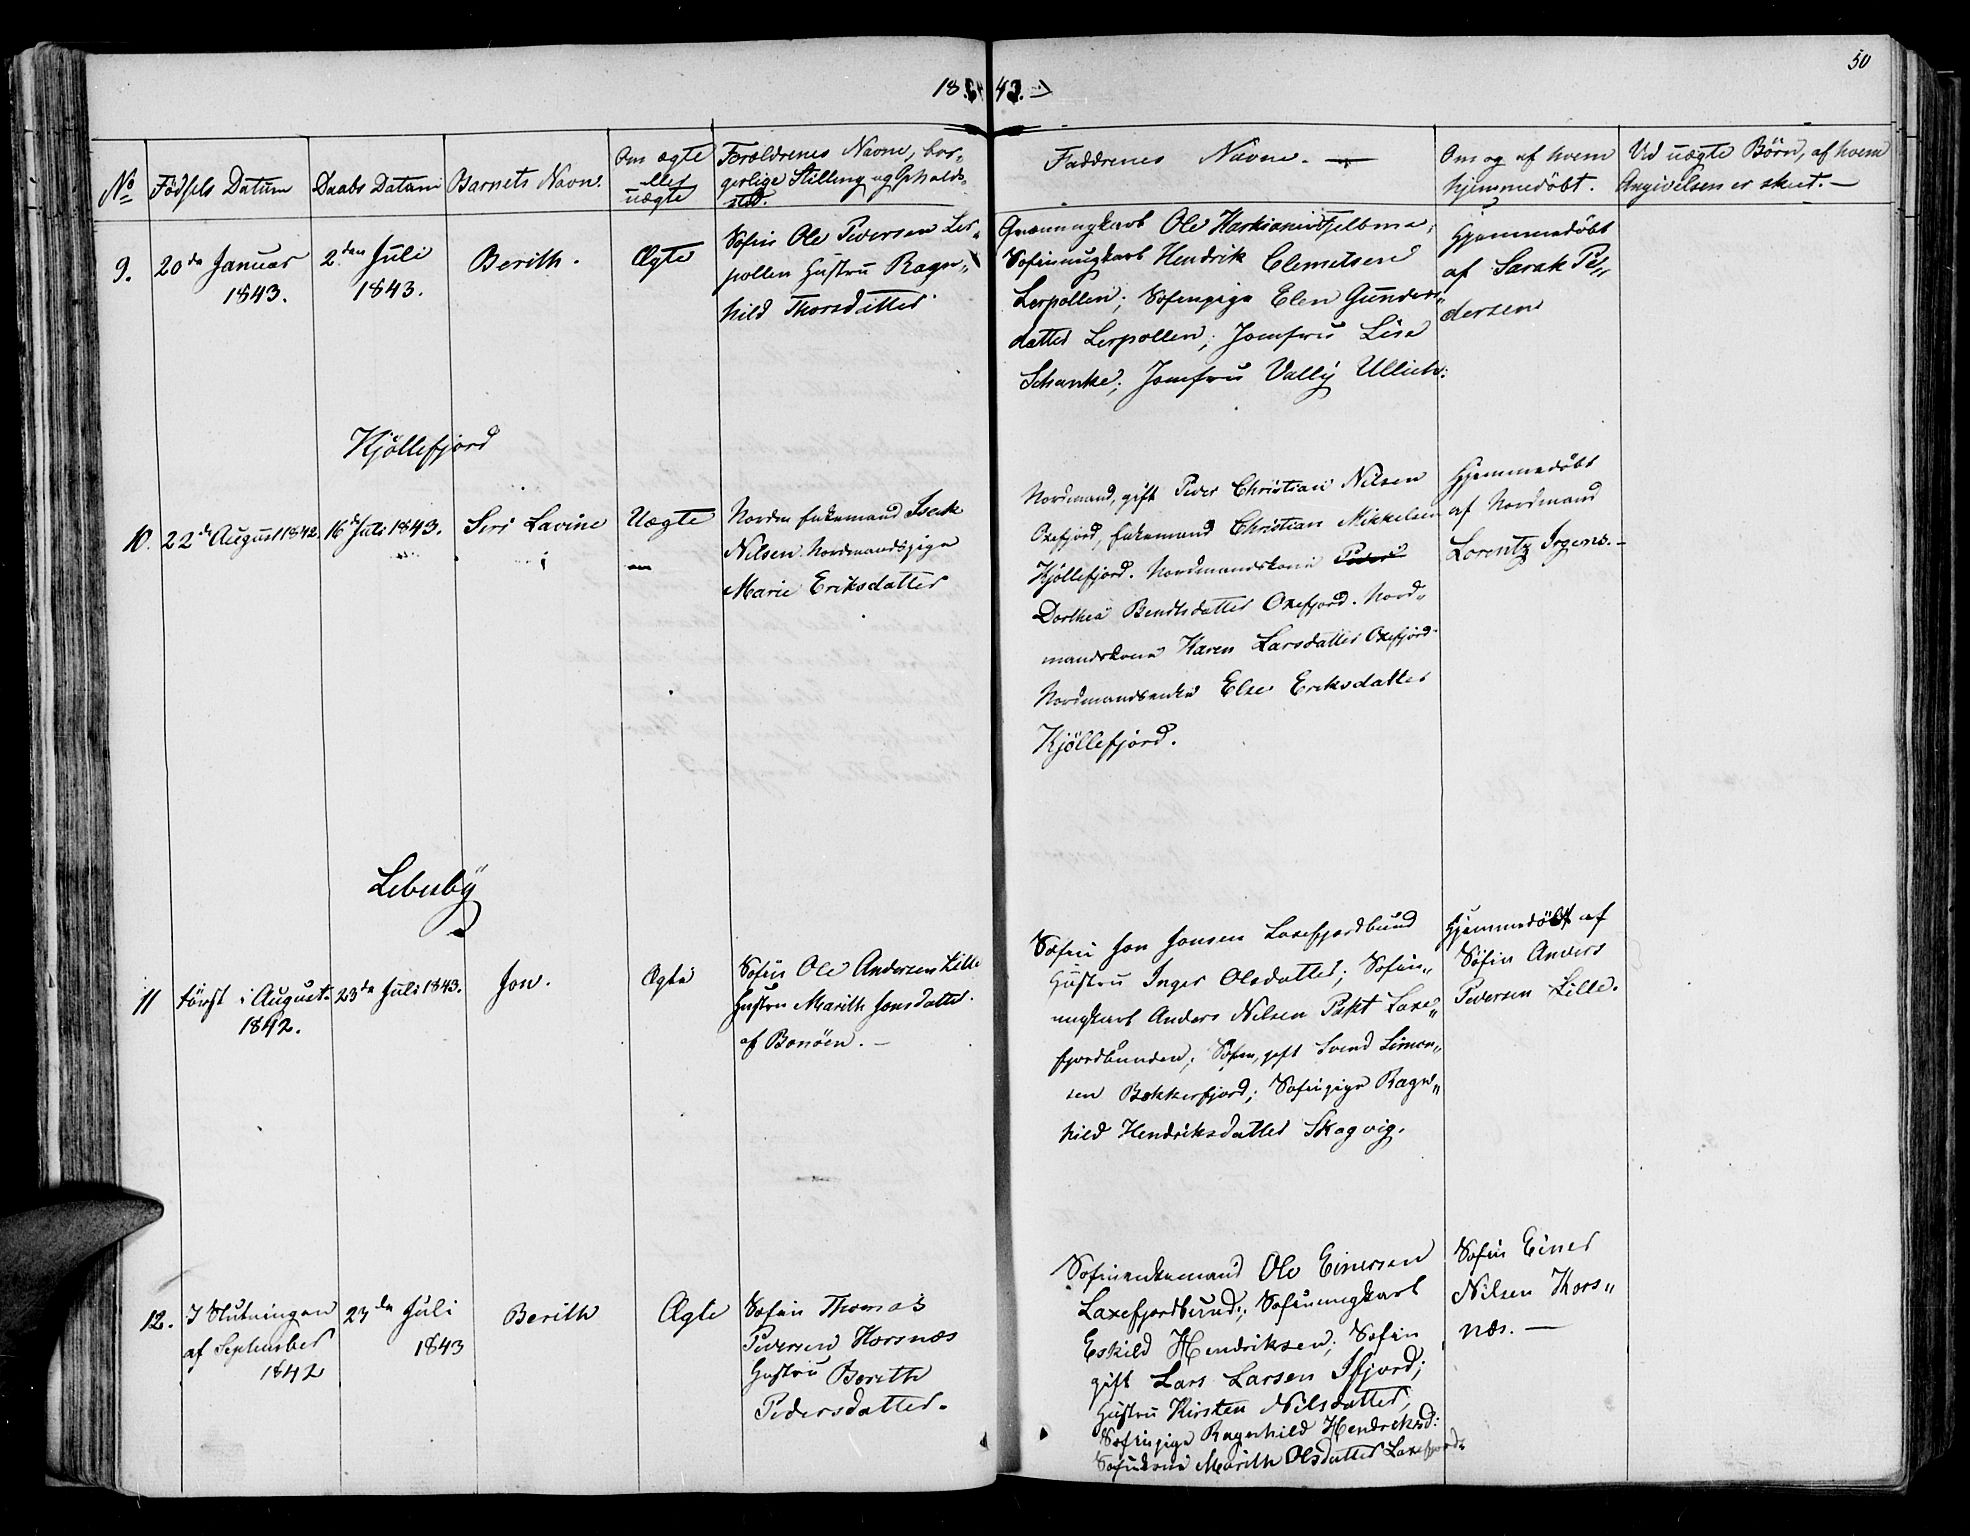 50
1843.
No
Fødsels Datum
Daabs Datum
Barnets Navn.
Om ægte
eller
uægte
Forældrenes Navne, bor-
gerlige Stilling og Opholds-
sted.
Faddrenes Navne.
Om og af hvem
hjemmedøbt.
Ved uægte Børn, af hvem
Angivelsen er skeet.
9.
20de Januar
1843.
2den Juli
1843.
Berith.
Ægte
Søfin Ole Pedersen Ler-
pollen Hustru Ragn-
hild Thorsdatter
Ole
Søfinungkarl Hendrik Clemetsen
Lerpollen; Søfinpige Elen Gunders-
datter Lerpollen; Jomfru Lise
Schanke; Jomfru Vally Ullich:
Hjemmedøbt
af Sarak Pe-
dersen
Kjøllefjord
10.
22de August 1842.
16de Juli 1843.
Siri Lavine
Uægte
Nordm. Enkemand Isak
Nilsen. Nordmandspige
Marie Eriksdatter
Nordmand, gift Peder Christian Nilsen
Oxefjord, Enkemand Christian Mikkelsen
Kjøllefjord. Nordmandskone Peder
Dorthea Bendtsdatter Oxefjord. Nord-
mandskone Karen Larsdatter Oxefjord.
Nordmandsenke Else Eriksdatter
Kjøllefjord.
Hjemmedøbt
af Nordmand
Lorentz Irgens.
Lebuby
11
først i August
1842.
23de Juli 1843.
Jon.
Ægte
Søfin Ole Andersen Lille
Hustru Marith Jonsdatter
af Bonøen.
Søfin Jon Jonsen Laxefjordbund
Hustru Inger Olsdatter; Søfin-
ungkarl Anders Nilsen Pakt Laxe-
fjordbunden; Søfin, gift Svend Simon-
sen Bekkerfjord; Søfinpige Ragn-
hild Hendriksdatter Skogvig.
Hjemmedøbt af
Søfin Anders
Pedersen Lille.
12.
I Slutningen
af September
1842
23de Juli
1843
Berith
Ægte
Søfin Thomas
Pedersen Torsnæs
Hustru Berith
Pedersdatter.
Søfinenkemand Ole Einersen
Laxefjordbund; Søfinungkarl
Eskild Hendriksen; Søfin
gift Lars Larsen Ifjord;
Hustru Kirsten Nilsdatter,
Søfinpige Ragnhild Hendriksd:
Søfinkone Marith Olsdatter Laxefjord
Søfin Einer
Nilsen Thors-
næs.